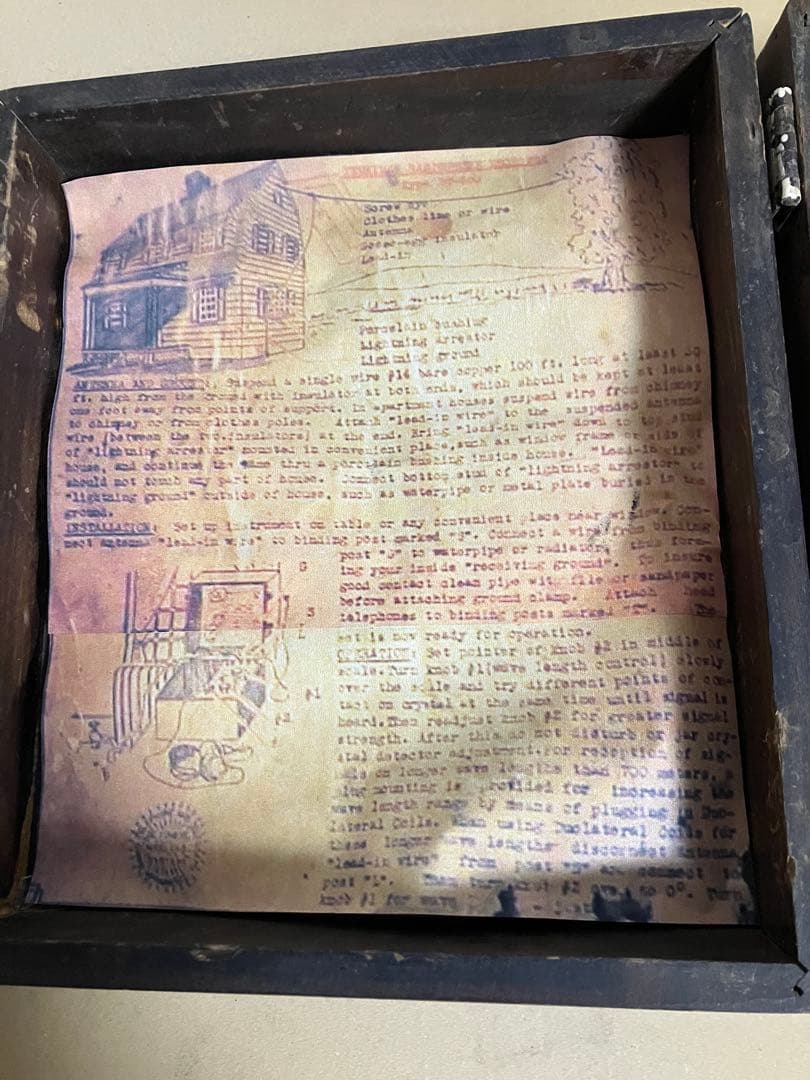 Screw eye
Clothes line or wire
Antenna
insulator
Lead-in
Porcelain bushing
Lightning arrestor
Lightning ground
ANTENNA AND GROUND: Suspend a single wire #14 bare copper 100 ft. long at least 30
ft. high from the ground with insulator at both ends, which should be kept at least
one foot away from points of support. In apartment houses suspend wire from chimney
to chimney or from clothes poles. Attach "lead-in wire" to the suspended antenna
wire (between the two insulators) at the end. Bring "lead-in wire" down to top stud
of "lightning arrestor" mounted in convenient place, such as window frame or side of
house, and continue the same thru a porcelain bushing inside house. "Lead-in wire"
should not touch any part of house. Connect bottom stud of "lightning arrestor" to
"lightning ground" outside of house, such as waterpipe or metal plate buried in the
ground.
INSTALLATION: Set up instrument on table or any convenient place near window. Con-
nect antenna "lead-in wire" to binding post marked Connect a wire from binding
post "G" to waterpipe or radiator, thus form-
ing your inside "receiving ground". To insure
good contact clean pipe with file or sandpaper
before attaching ground clamp. Attach head
telephones to binding posts marked The
set is now ready for operation.
OPERATION: Set pointer of knob #2 in middle of
scale. Turn knob #1 (wave length control) slowly
over the scale and try different points of con-
tact on crystal at the same time until signal is
heard. Then readjust knob #2 for greater signal
strength. After this do not disturb or jar cry-
stal detector adjustment. For reception of sig-
nals on longer wave lengths than 700 meters, a
plug mounting is provided for increasing the
wave length range by means of plugging in Duo-
lateral Coils. When using Duolateral Coils for
these longer wave lengths disconnect antenna
"lead-in wire" from post and connect to
post "L". Then turn knob #2 to 0°. Turn
knob #1 for wave
G
S
L
#1
#2